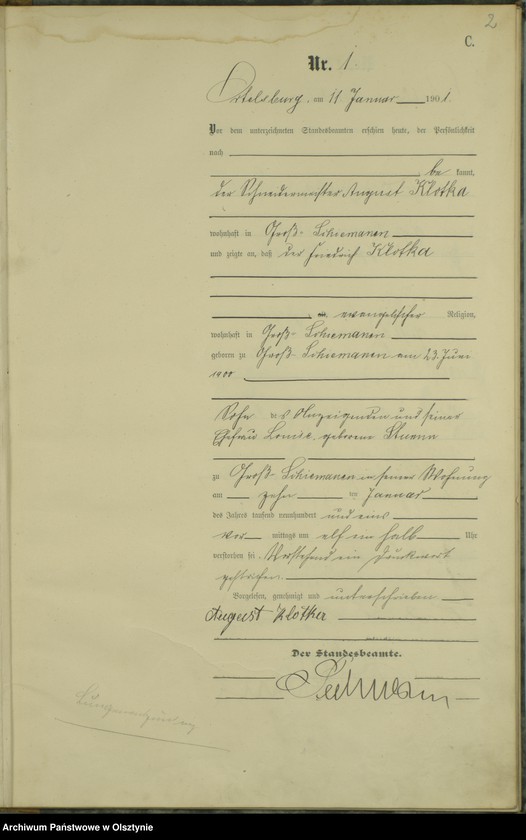 2
C.
Nr. 1
Ortelsburg, am 11 Januar 1901.
Vor dem unterzeichneten Standesbeamten erschien heute, der Persönlichkeit
nach
be kannt,
der Schneidermeister August Klotka
wohnhaft in Groß-Schiemanen
und zeigte an, daß der Friedrich Klotka
evangelischer Religion,
wohnhaft in Groß-Schiemanen
geboren zu Groß-Schiemanen am 23. Juni
1900
Sohn des Anzeigenden und seiner
Ehefrau Louise geborene
zu Groß-Schiemanen in seiner Wohnung
am zehn ten Januar
des Jahres tausend neunhundert und eins
Vor mittags um elf ein halb Uhr
verstorben sei. Vorstehend ein Druckwort
gestrichen.
Vorgelesen, genehmigt und unterschrieben
August Klotka
Der Standesbeamte.
Lungenentzündung
Archiwum Państwowe w Olsztynie